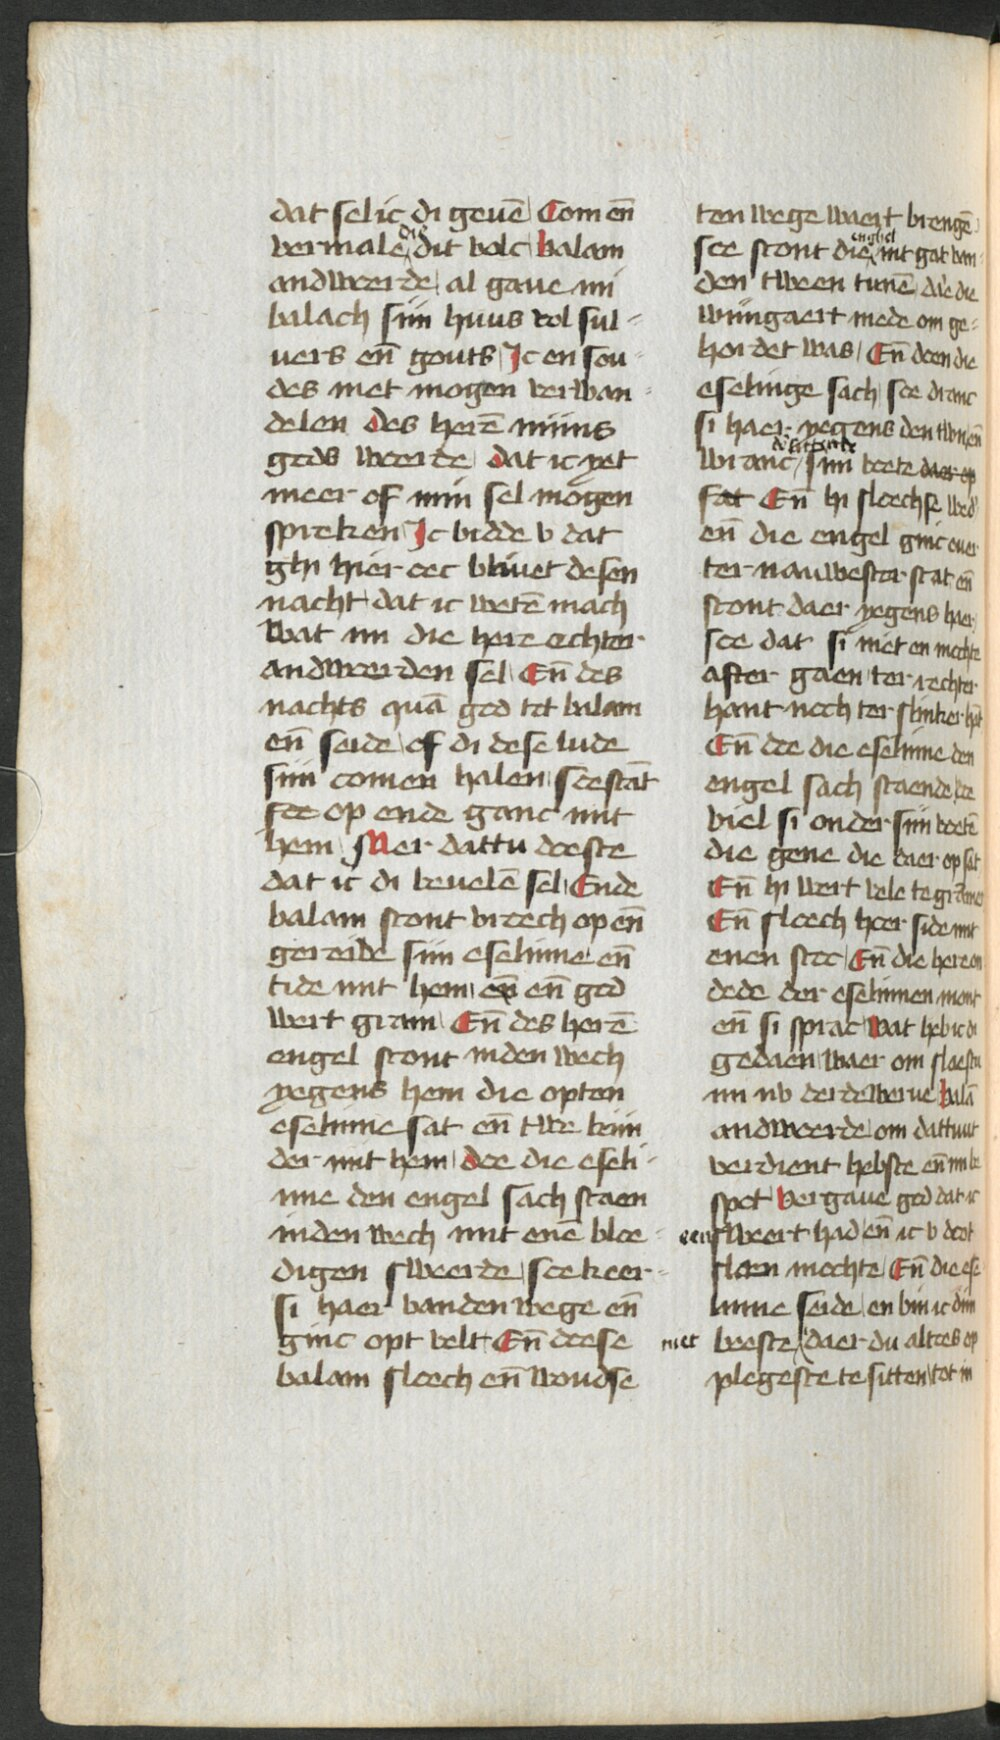 dat sel ic di geuē Com en̄
vermale die dit volc Balam
andweerde al gaue mi
balach sijn huus vol sul-
uers en̄ gouts Ic en sou-
des niet mogen verwan-
delen des herē mijns
gods woerde dat ic yet
meer of min sel mogen
spreken Ic bidde v dat
ghi hier oec bliuet desen
nacht dat ic wetē mach
wat mi die here echter
andweerden sel En̄ des
nachts quā god tot balam
en̄ seide of di dese lude
sijn comen halen soe stāt
soe op ende ganc mit
hem Mer dattu doeste
dat ic di beuelē sel Ende
balam stont vroech op en̄
gereide sijn eselinne en̄
tide mit hem en̄ god
wert gram En̄ des herē
engel stont inden wech
yegens hem die opten
eselinne sat en̄ twe kijn
der mit hem doe die eseli-
nne den engel sach staen
inden wech mit enē bloe-
digen sweerde soe keer-
si haer vanden wege en̄
ginc opt velt En̄ doese
balam sloech en̄ woudse
ten wege waert brengē
soe stont die enghel int gat van
den tween tunē daer die
wijngaert mede om ge-
hordet was En̄ doen die
eselinge sach soe dranc
si haer yegens den tuun en̄
wranc des sittende sijn voete daer op
sat En̄ hi sloechse wed'
en̄ die engel ginc ouer
ter nauwester stat en̄
stont daer yegens haer
soe dat si niet en mochte
after gaen ter rechter
hant noch ter slinker hāt
En̄ doe die eselinne den
engel sach staende doe
viel si onder sijn voetē
die gene die daer op sat
En̄ hi wert vele te gramer
En̄ sloech hoer side mit
enen stoc En̄ die here on
dede der eselinnen mont
en̄ si sprac wat heb ic di
gedaen waer om slaestu
mi nv derdewerue balā
andweerde om dattuut
verdient hebste en̄ mi be
spot vergaue god dat ic
een sweert had en̄ ic v doot
slaen mochte En̄ die ese
linne seide en bin ic dijn
niet beeste daer du altoes op
plegeste te sitten tot in